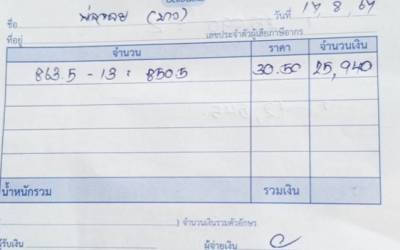 ชื่อ (ขาว) วันที่ 17, 8, 67
ที่อยู่ เลขประจำตัวผู้เสียภาษีอากร
จำนวน ราคา จำนวนเงิน
863.5 - 13 = 850.5 30.50 25,940
น้ำหนักรวม รวมเงิน
) จำนวนเงินรวมตัวอักษร
ผู้รับเงิน ผู้จ่ายเงิน